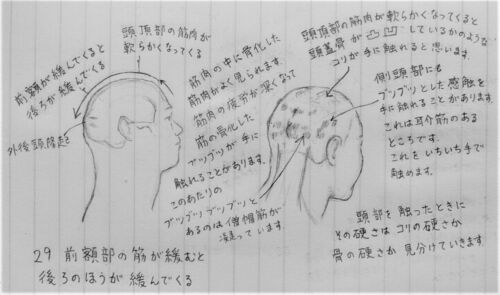 頭頂部の筋肉が
軟らかくなってくる
前額が緩んでくると
後ろが緩んでくる
外後頭隆起
筋肉の中に骨化した
筋肉がよく見られます。
筋肉の疲労が深くなって
筋の骨化した
ブツブツが手に
触れることがあります。
このあたりの
ブツブツブツブツと
あるのは僧帽筋が
凝っています。
頭頂部の筋肉が軟らかくなってくると
頭蓋骨が凸凹しているかのような
コリが手に触れると思います。
側頭部にも
ブツブツとした感触を
手に触れることがあります。
これは耳介筋のある
ところです。
これをいちいち手で
触めます。
頭部を触ったときに
その硬さはコリの硬さか
骨の硬さか 見分けていきます。
29 前額部の筋が緩むと
後ろのほうが緩んでくる